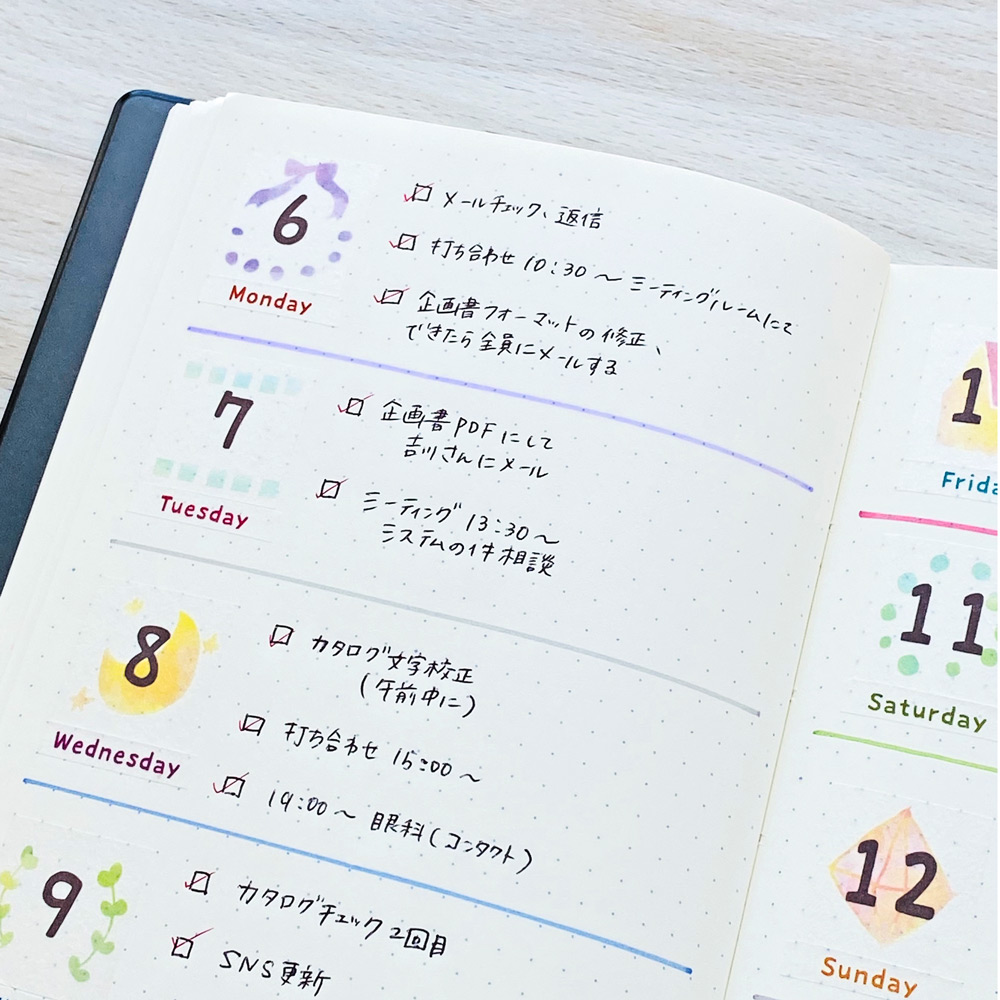 6
Monday
メールチェック、返信
打ち合わせ 10:30 〜 ミーティングルームにて
企画書フォーマットの修正、
できたら全員にメールする
7
Tuesday
企画書PDFにして
吉川さんにメール
ミーティング 13:30〜
システムの件相談
8
Wednesday
カタログ文字校正
(午前中に)
打ち合わせ 15:00 〜
19:00 〜 眼科(コンタクト)
9
カタログチェック2回目
SNS更新
1
Frida
11
Saturday
12
Sunday